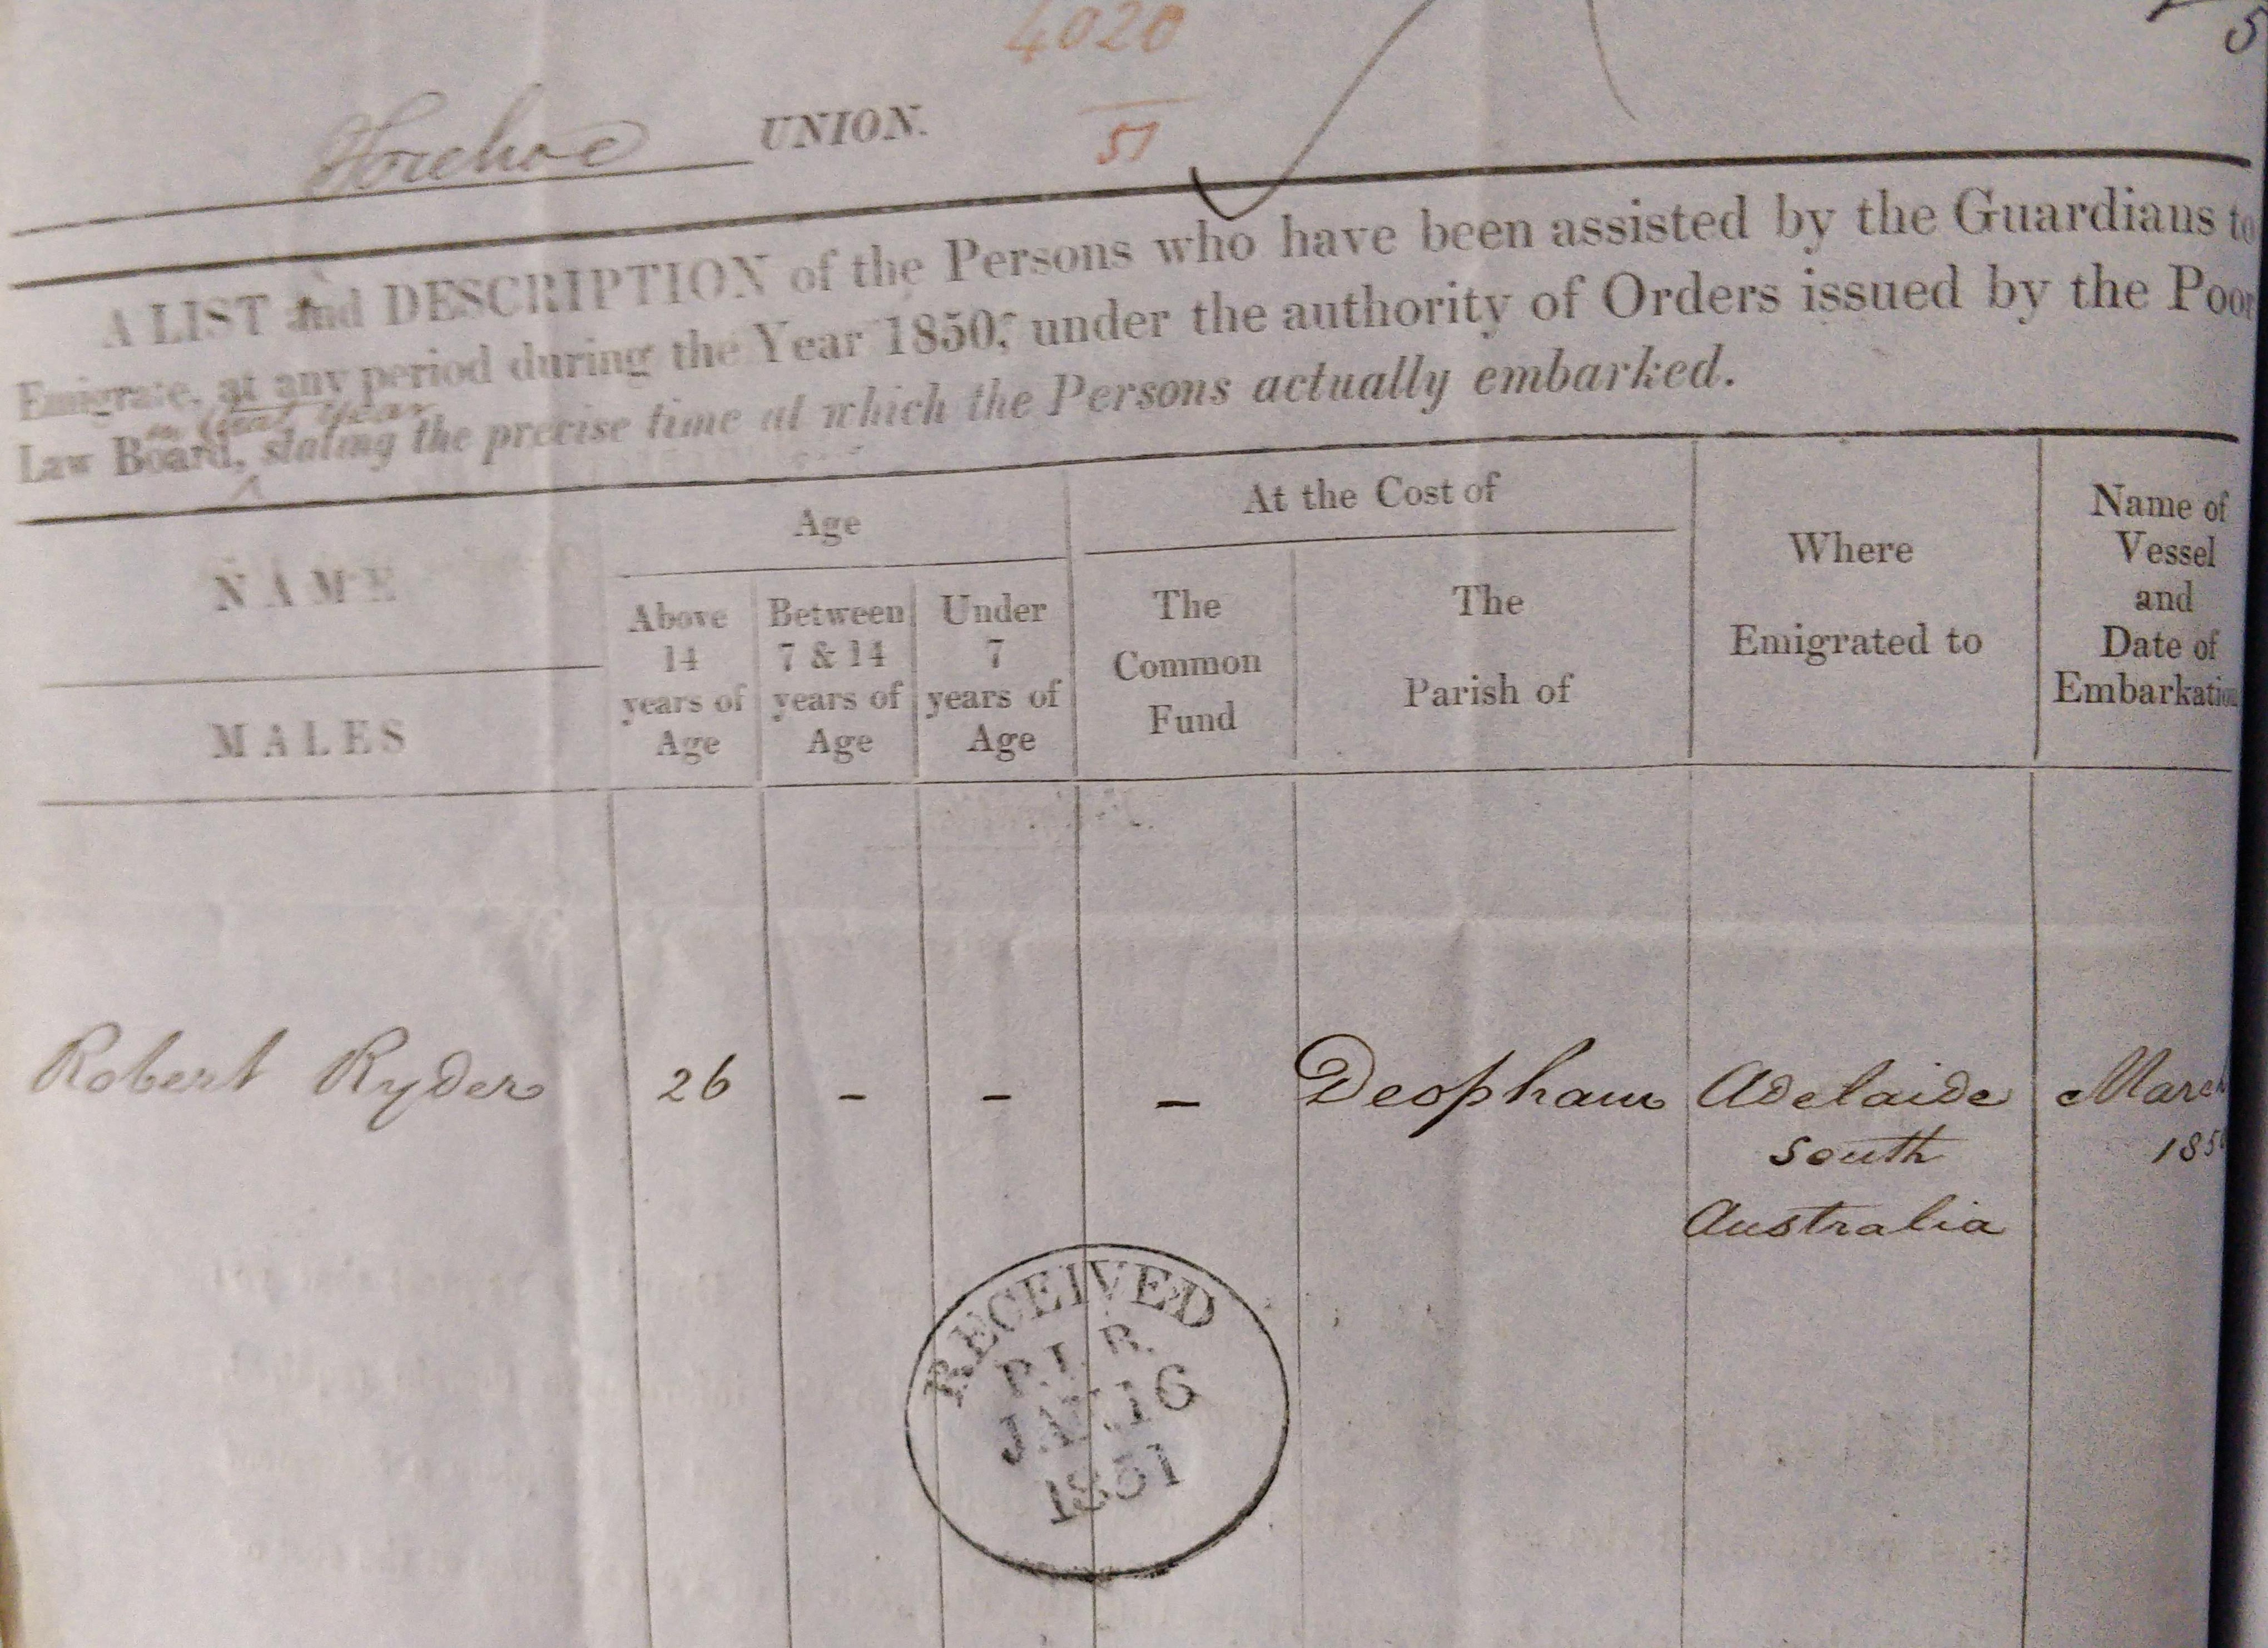 4020
51
5
Forehoe UNION.
A LIST and DESCRIPTION of the Persons who have been assisted by the Guardians to
Emigrate, at any period during the Year 1850, under the authority of Orders issued by the Poor
in that year
Law Board, stating the precise time at which the Persons actually embarked.
NAME
MALES
Age
Above
14
years of
Age
Between
7 & 14
years of
Age
Under
7
years of
Age
At the Cost of
The
Common
Fund
The
Parish of
Where
Emigrated to
Name of
Vessel
and
Date of
Embarkation
Robert Ryder 26 - - - Deopham Adelaide March
South 1850
Australia
RECEIVED
P.L.B.
JAN.16
1851